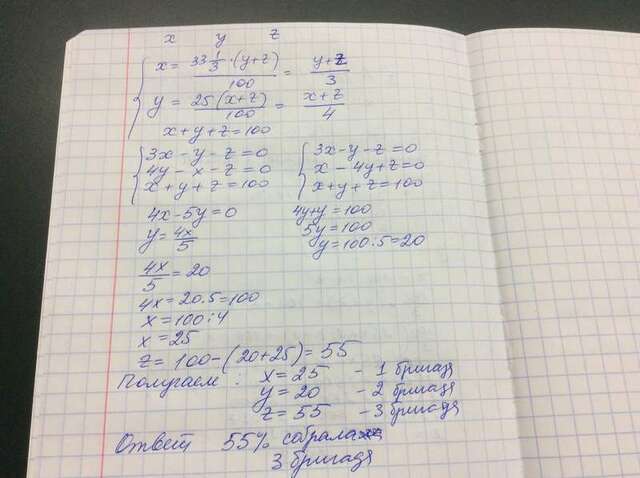 x y z
x = 33 1/3 · (y+z) / 100 = y+z / 3
y = 25 (x+z) / 100 = x+z / 4
x + y + z = 100
3x - y - z = 0
4y - x - z = 0
x + y + z = 100
3x - y - z = 0
x - 4y + z = 0
x + y + z = 100
4x - 5y = 0
y = 4x / 5
4y + y = 100
5y = 100
y = 100 : 5 = 20
4x / 5 = 20
4x = 20 · 5 = 100
x = 100 : 4
x = 25
z = 100 - (20 + 25) = 55
Получаем : x = 25 - 1 бригада
y = 20 - 2 бригада
z = 55 - 3 бригада
Ответ 55% собрала
3 бригада